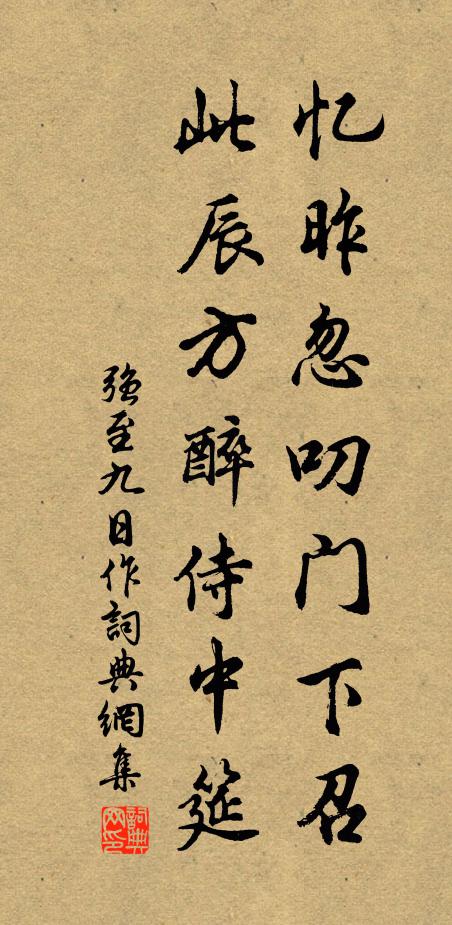 忆昨忽叨门下召
此辰方醉侍中筵
强至九日作詞典網集
詞典網印